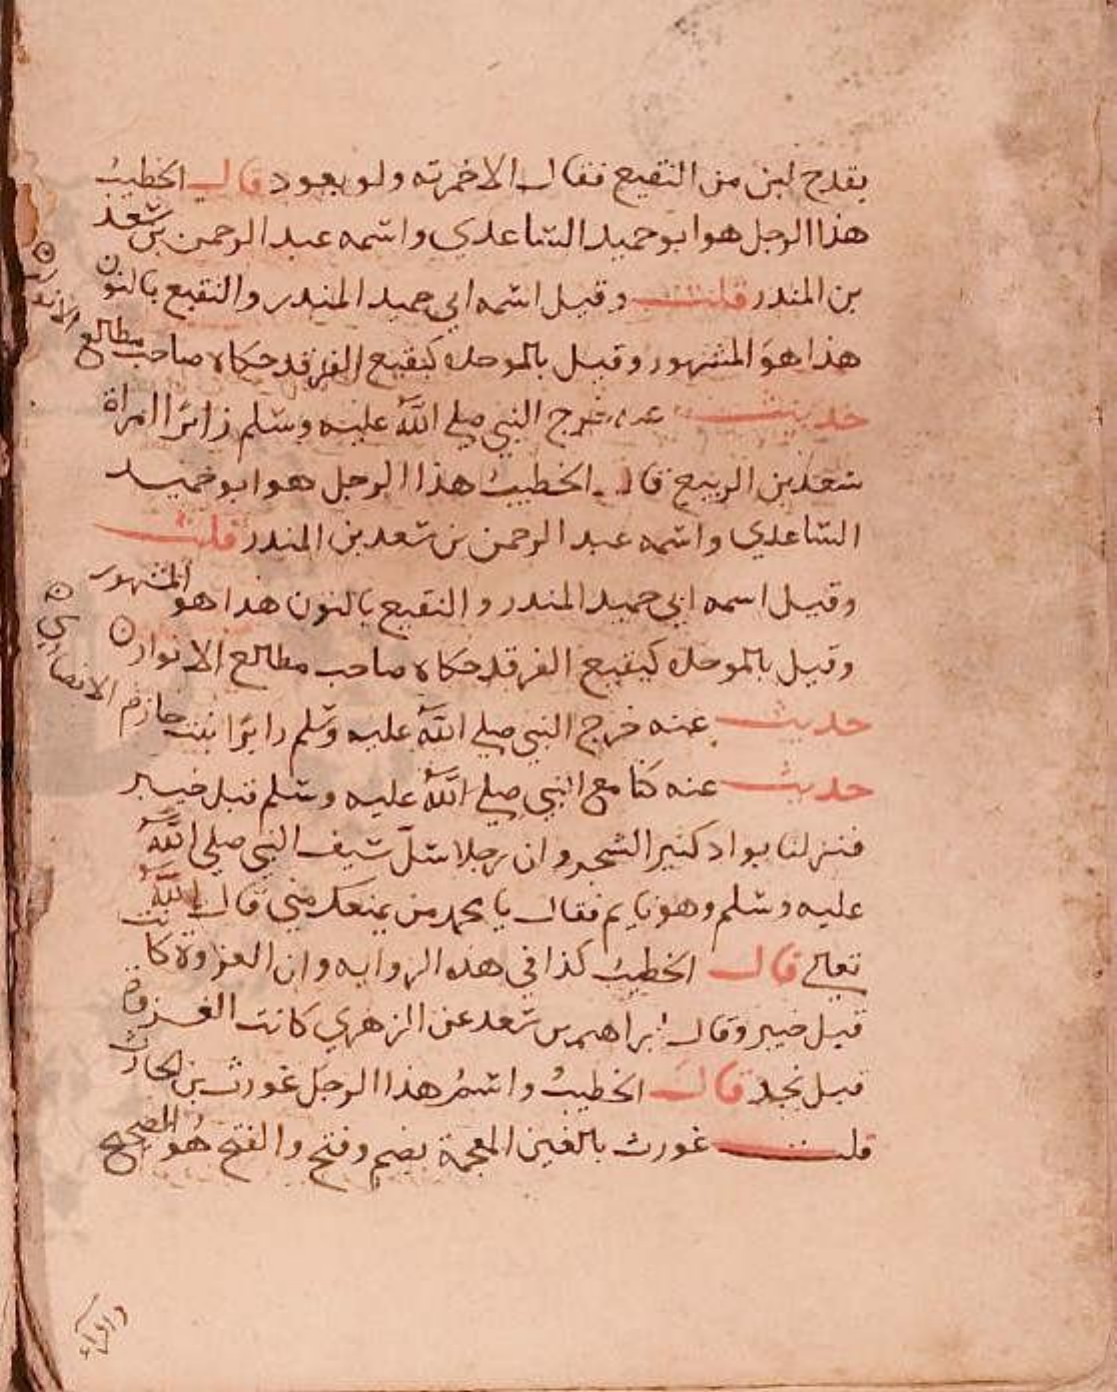 بقدح لبن من النقيع فقال الا خمرته ولو بعود قال الخطيب
هذا الرجل هو ابو حميد الساعدي واسمه عبد الرحمن بن سعد
بن المنذر قلت وقيل اسمه ابي حميد المنذر والنقيع بالنون
هذا هو المشهور وقيل بالموحده كبقيع الغرقد حكاه صاحب مطالع الانوار
حديث عنه خرج النبي صلي الله عليه وسلم زائرا امراة
سعد بن الربيع قال الخطيب هذا الرجل هو ابو حميد
الساعدي واسمه عبد الرحمن بن سعد بن المنذر قلت
وقيل اسمه ابي حميد المنذر والنقيع بالنون هذا هو المشهور
وقيل بالموحده كبقيع الغرقد حكاه صاحب مطالع الانوار
حديث عنه خرج النبي صلي الله عليه وسلم زايرا بنت حازم الانصاري
حديث عنه كنا مع النبي صلي الله عليه وسلم قبل خيبر
فنزلنا بواد كثير الشجر وان رجلا سل سيف النبي صلي الله
عليه وسلم وهو نايم فقال يا محمد من يمنعك مني قال الله
تعالي قال الخطيب كذا في هذه الروايه وان الغزوة كانت
قبل خيبر وقال ابراهيم بن سعد عن الزهري كانت الغزوة
قبل نجد قال الخطيب واسم هذا الرجل غورث بن الحارث
قلت غورث بالغين المعجمة بضم وفتح والفتح هو الصحيح